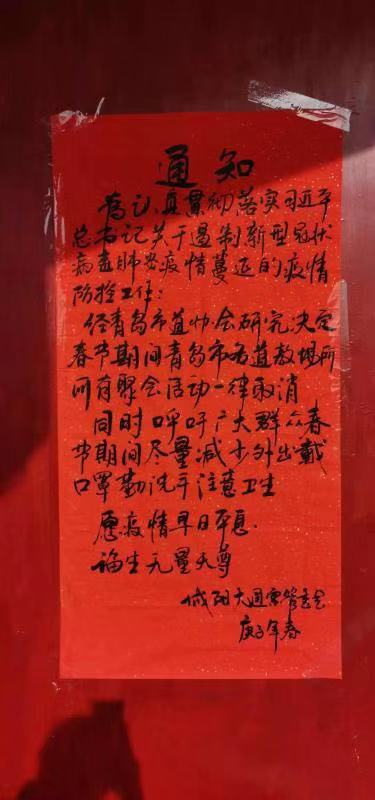 通知
为认真贯彻落实习近平
总书记关于遏制新型冠状
病毒肺炎疫情蔓延的疫情
防控工作:
经青岛市道协会研究决定
春节期间青岛市各道教场所
所有聚会活动一律取消
同时呼吁广大群众春
节期间尽量减少外出戴
口罩勤洗手注意卫生
愿疫情早日平息.
福生无量天尊
大通宫管委会
庚子年春